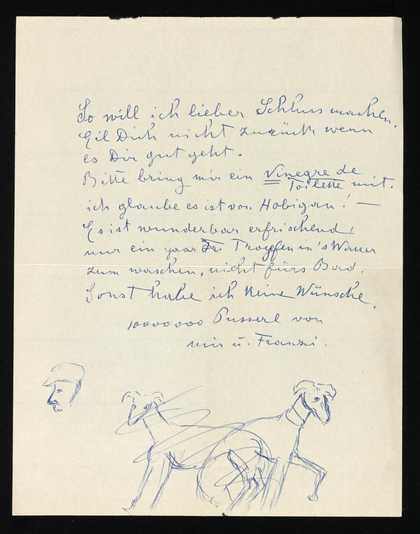 So will ich lieber Schluss machen.
Eil Dich nicht zurück wenn
es Dir gut geht.
Bitte bring mir ein Vinegre de
Toilette mit.
ich glaube es ist von Hobigan! —
Es ist wunderbar erfrischend!
nur ein paar Tropffen in's Wasser
zum waschen, nicht fürs Bad.
Sonst habe ich keine Wünsche.
10000000 Pusserl von
mir u. Franzi.